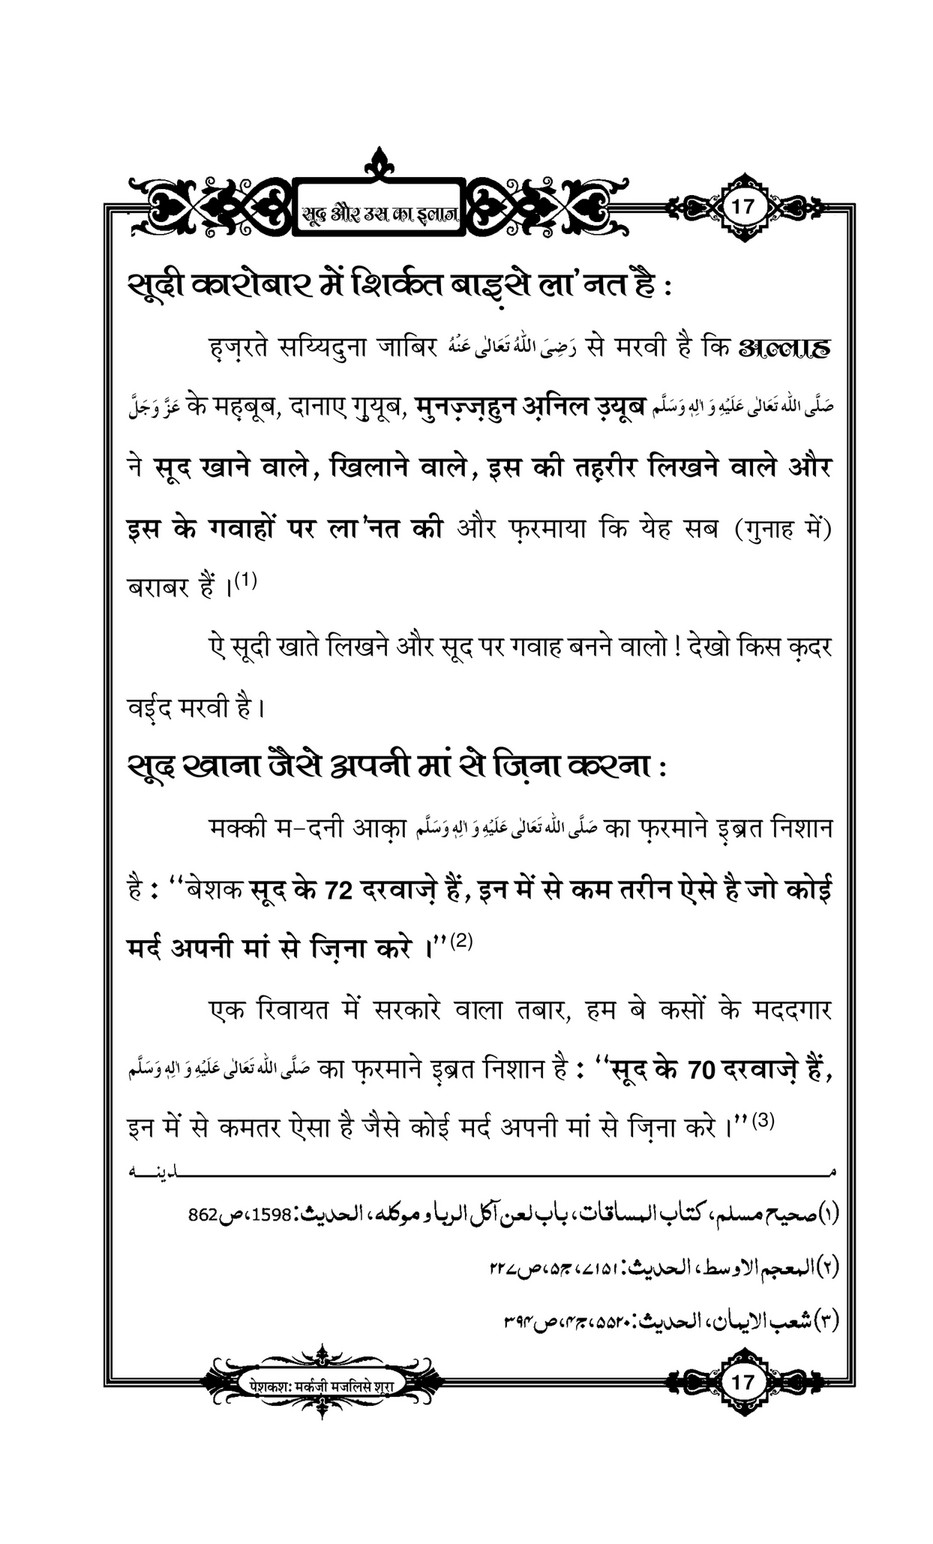 सूद और उस का इलाज
17
सूदी कारोबार में शिर्कत बाइ़से ला'नत है :
ह़ज़रते सय्यिदुना जाबिर رَضِیَ اللّٰہُ تَعَالٰی عَنْہُ से मरवी है कि अल्लाह
عَزَّ وَجَلَّ के मह़बूब, दानाए ग़ुयूब, मुनज़्ज़हुन अ़निल उ़यूब صَلَّی اللّٰہ تَعَالٰی عَلَیْہِ وَ اٰلِہٖ وَسَلَّم
ने सूद खाने वाले, खिलाने वाले, इस की तह़रीर लिखने वाले और
इस के गवाहों पर ला'नत की और फ़रमाया कि येह सब (गुनाह में)
बराबर हैं ।(1)
ऐ सूदी खाते लिखने और सूद पर गवाह बनने वालो ! देखो किस क़दर
वई़द मरवी है ।
सूद खाना जैसे अपनी मां से ज़िना करना :
मक्की म-दनी आक़ा صَلَّی اللّٰہ تَعَالٰی عَلَیْہِ وَ اٰلِہٖ وَسَلَّم का फ़रमाने इ़ब्रत निशान
है : ‘‘बेशक सूद के 72 दरवाज़े हैं, इन में से कम तरीन ऐसे है जो कोई
मर्द अपनी मां से ज़िना करे ।’’(2)
एक रिवायत में सरकारे वाला तबार, हम बे कसों के मददगार
صَلَّی اللّٰہ تَعَالٰی عَلَیْہِ وَ اٰلِہٖ وَسَلَّم का फ़रमाने इ़ब्रत निशान है : ‘‘सूद के 70 दरवाज़े हैं,
इन में से कमतर ऐसा है जैसे कोई मर्द अपनी मां से ज़िना करे ।’’(3)
مـــدینــــہ
(۱) صحیح مسلم، کتاب المساقات، باب لعن آکل الربا و موکله، الحدیث: 1598، ص862
(۲) المعجم الاوسط، الحدیث: ۷۱۵۱، ج۵، ص۲۲۷
(۳) شعب الایمان، الحدیث: ۵۵۲۰، ج۴، ص۳۹۴
पेशकश: मर्कज़ी मजलिसे शूरा
17